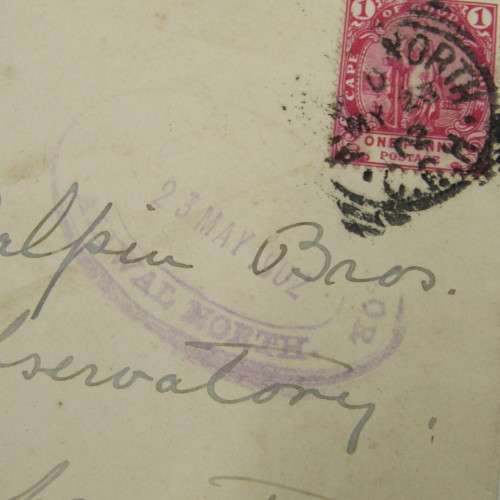 1 OF GOOD 1
CAPE
ONE PENNY
POSTAGE
NORTH
MY 23
23 MAY 02
VAL NORTH.
alpin Bros.
bservatory,